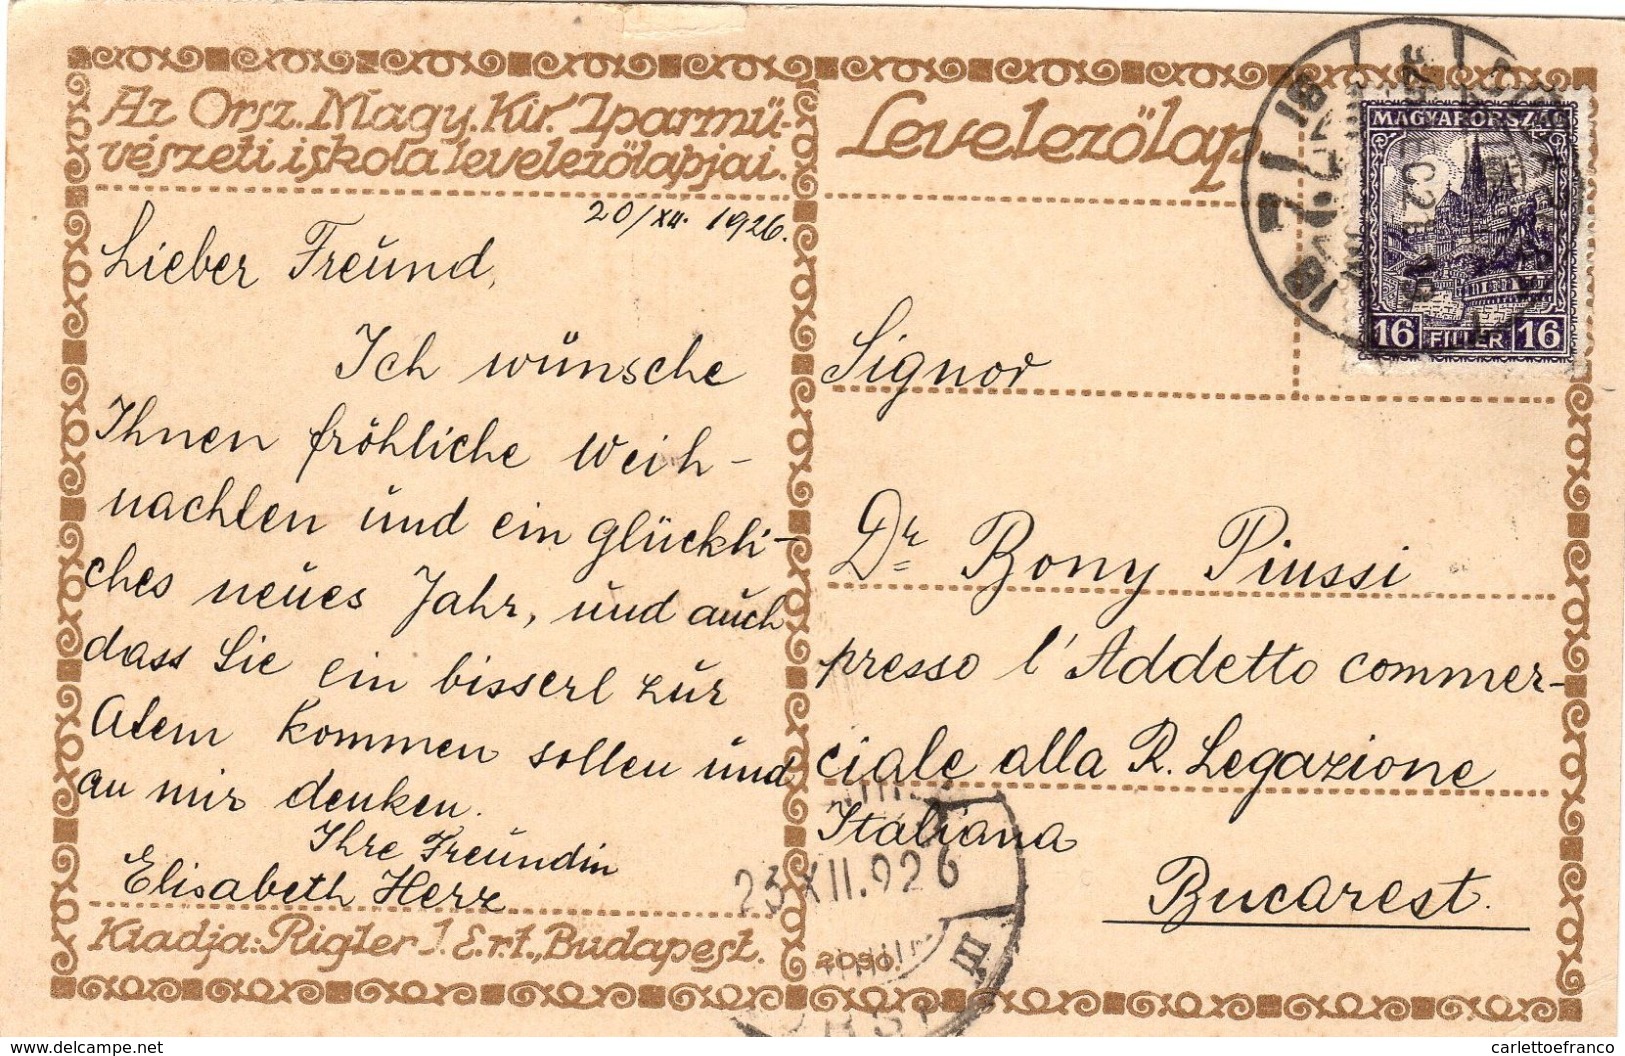 Az Orsz. Magy. Kir. Iparmű-
vészeti iskola levelezőlapjai.
20/XII. 1926.
Lieber Freund,
Ich wünsche
Ihnen fröhliche Weih-
nachten und ein glückli-
ches neues Jahr, und auch
dass Sie ein bisserl zur
Atem kommen sollen und
an mir denken.
Ihre Freundin
Elisabeth Herz
Kiadja: Rigler J. E. r.t., Budapest.
Levelezőlap
MAGYARORSZÁG
16 FILLÉR 16
Signor
Dr Bony Piussi
presso l'Addetto commer-
ciale alla R. Legazione
Italiana
Bucarest.
23 XII. 926
III
delcampe.net
carlettoefranco